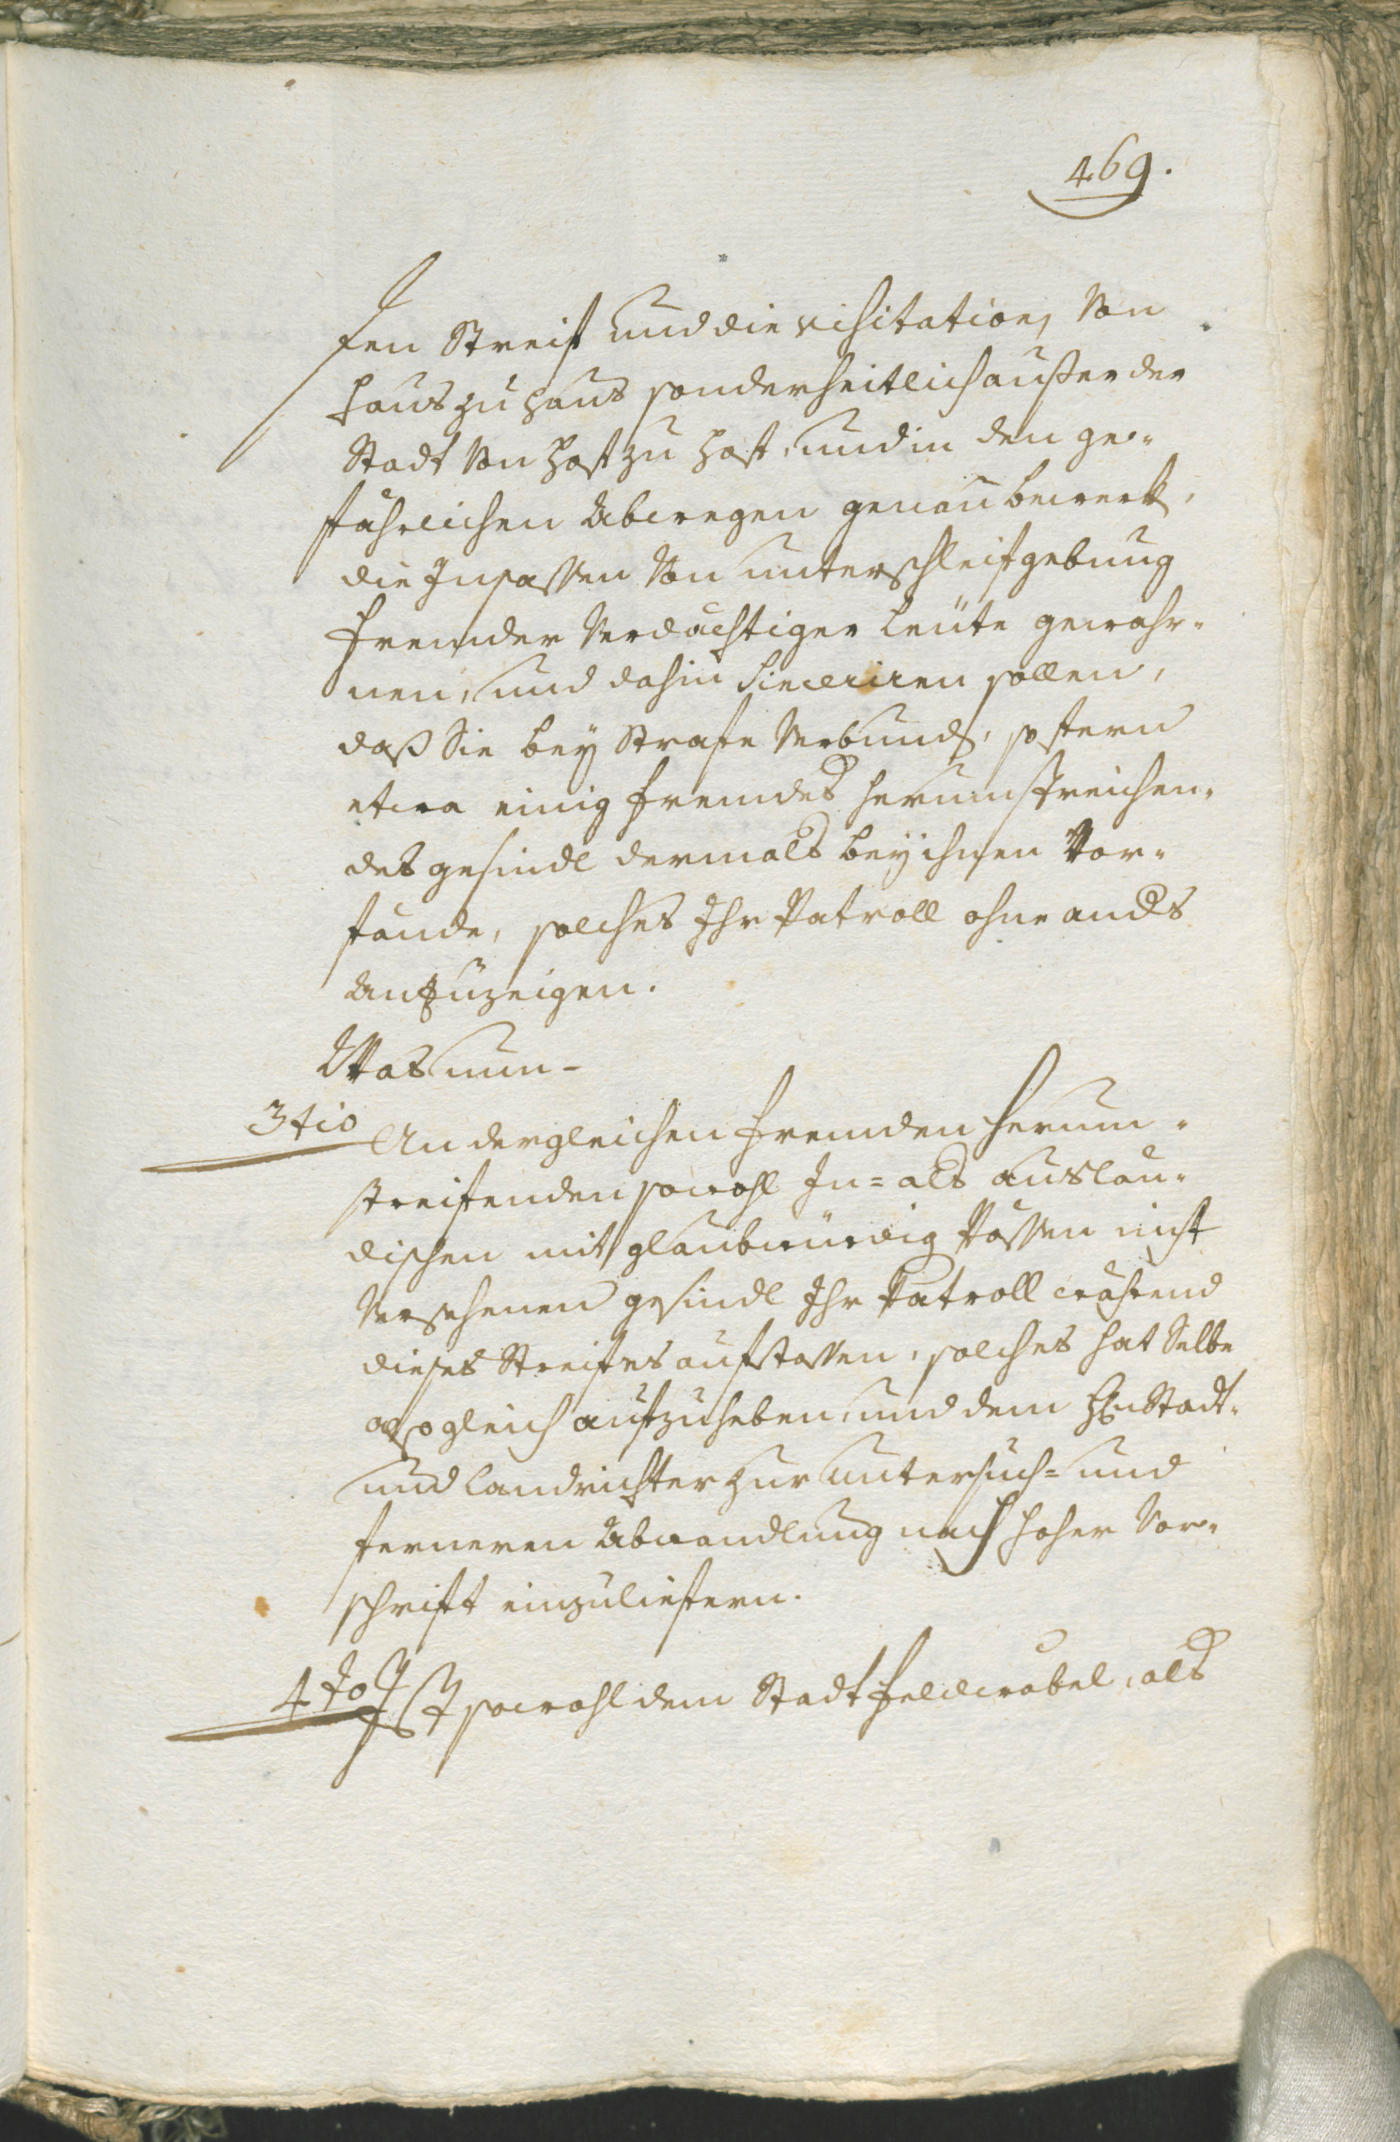 469.
sen Streif und die visitation, von
Haus zu Haus sonderheitlich ausser der
Stadt von Hof zu Hof, und in den ge-
fährlichen Abwegen genau bewerk,
die Insassen von unterschleifgebung
fremder verdächtiger Leüte gewahr-
nen, und dahin sinceriren sollen,
daß Sie bey Strafe verbunden, sofern
etwa einig fremdes herumstreichen-
des gesindl dermals bey ihnen vor-
fände, solches Ihr Patroll ohne anders
anzuzeigen.
Was nun-
3tio An dergleichen fremden herum-
streifenden sowohl In= als auslän-
dischen mit glaubwürdig Pässen nicht
versehenen gesindl Ihr Patroll während
dieses Streifes aufstossen, solches hat Selbe
alsogleich aufzuheben, und dem Hn Stadt-
und Landrichter zur untersuch= und
ferneren Abwandlung nach hoher Vor-
schrift einzuliefern.
4to Ist sowohl dem Stadt feldwäbel, als